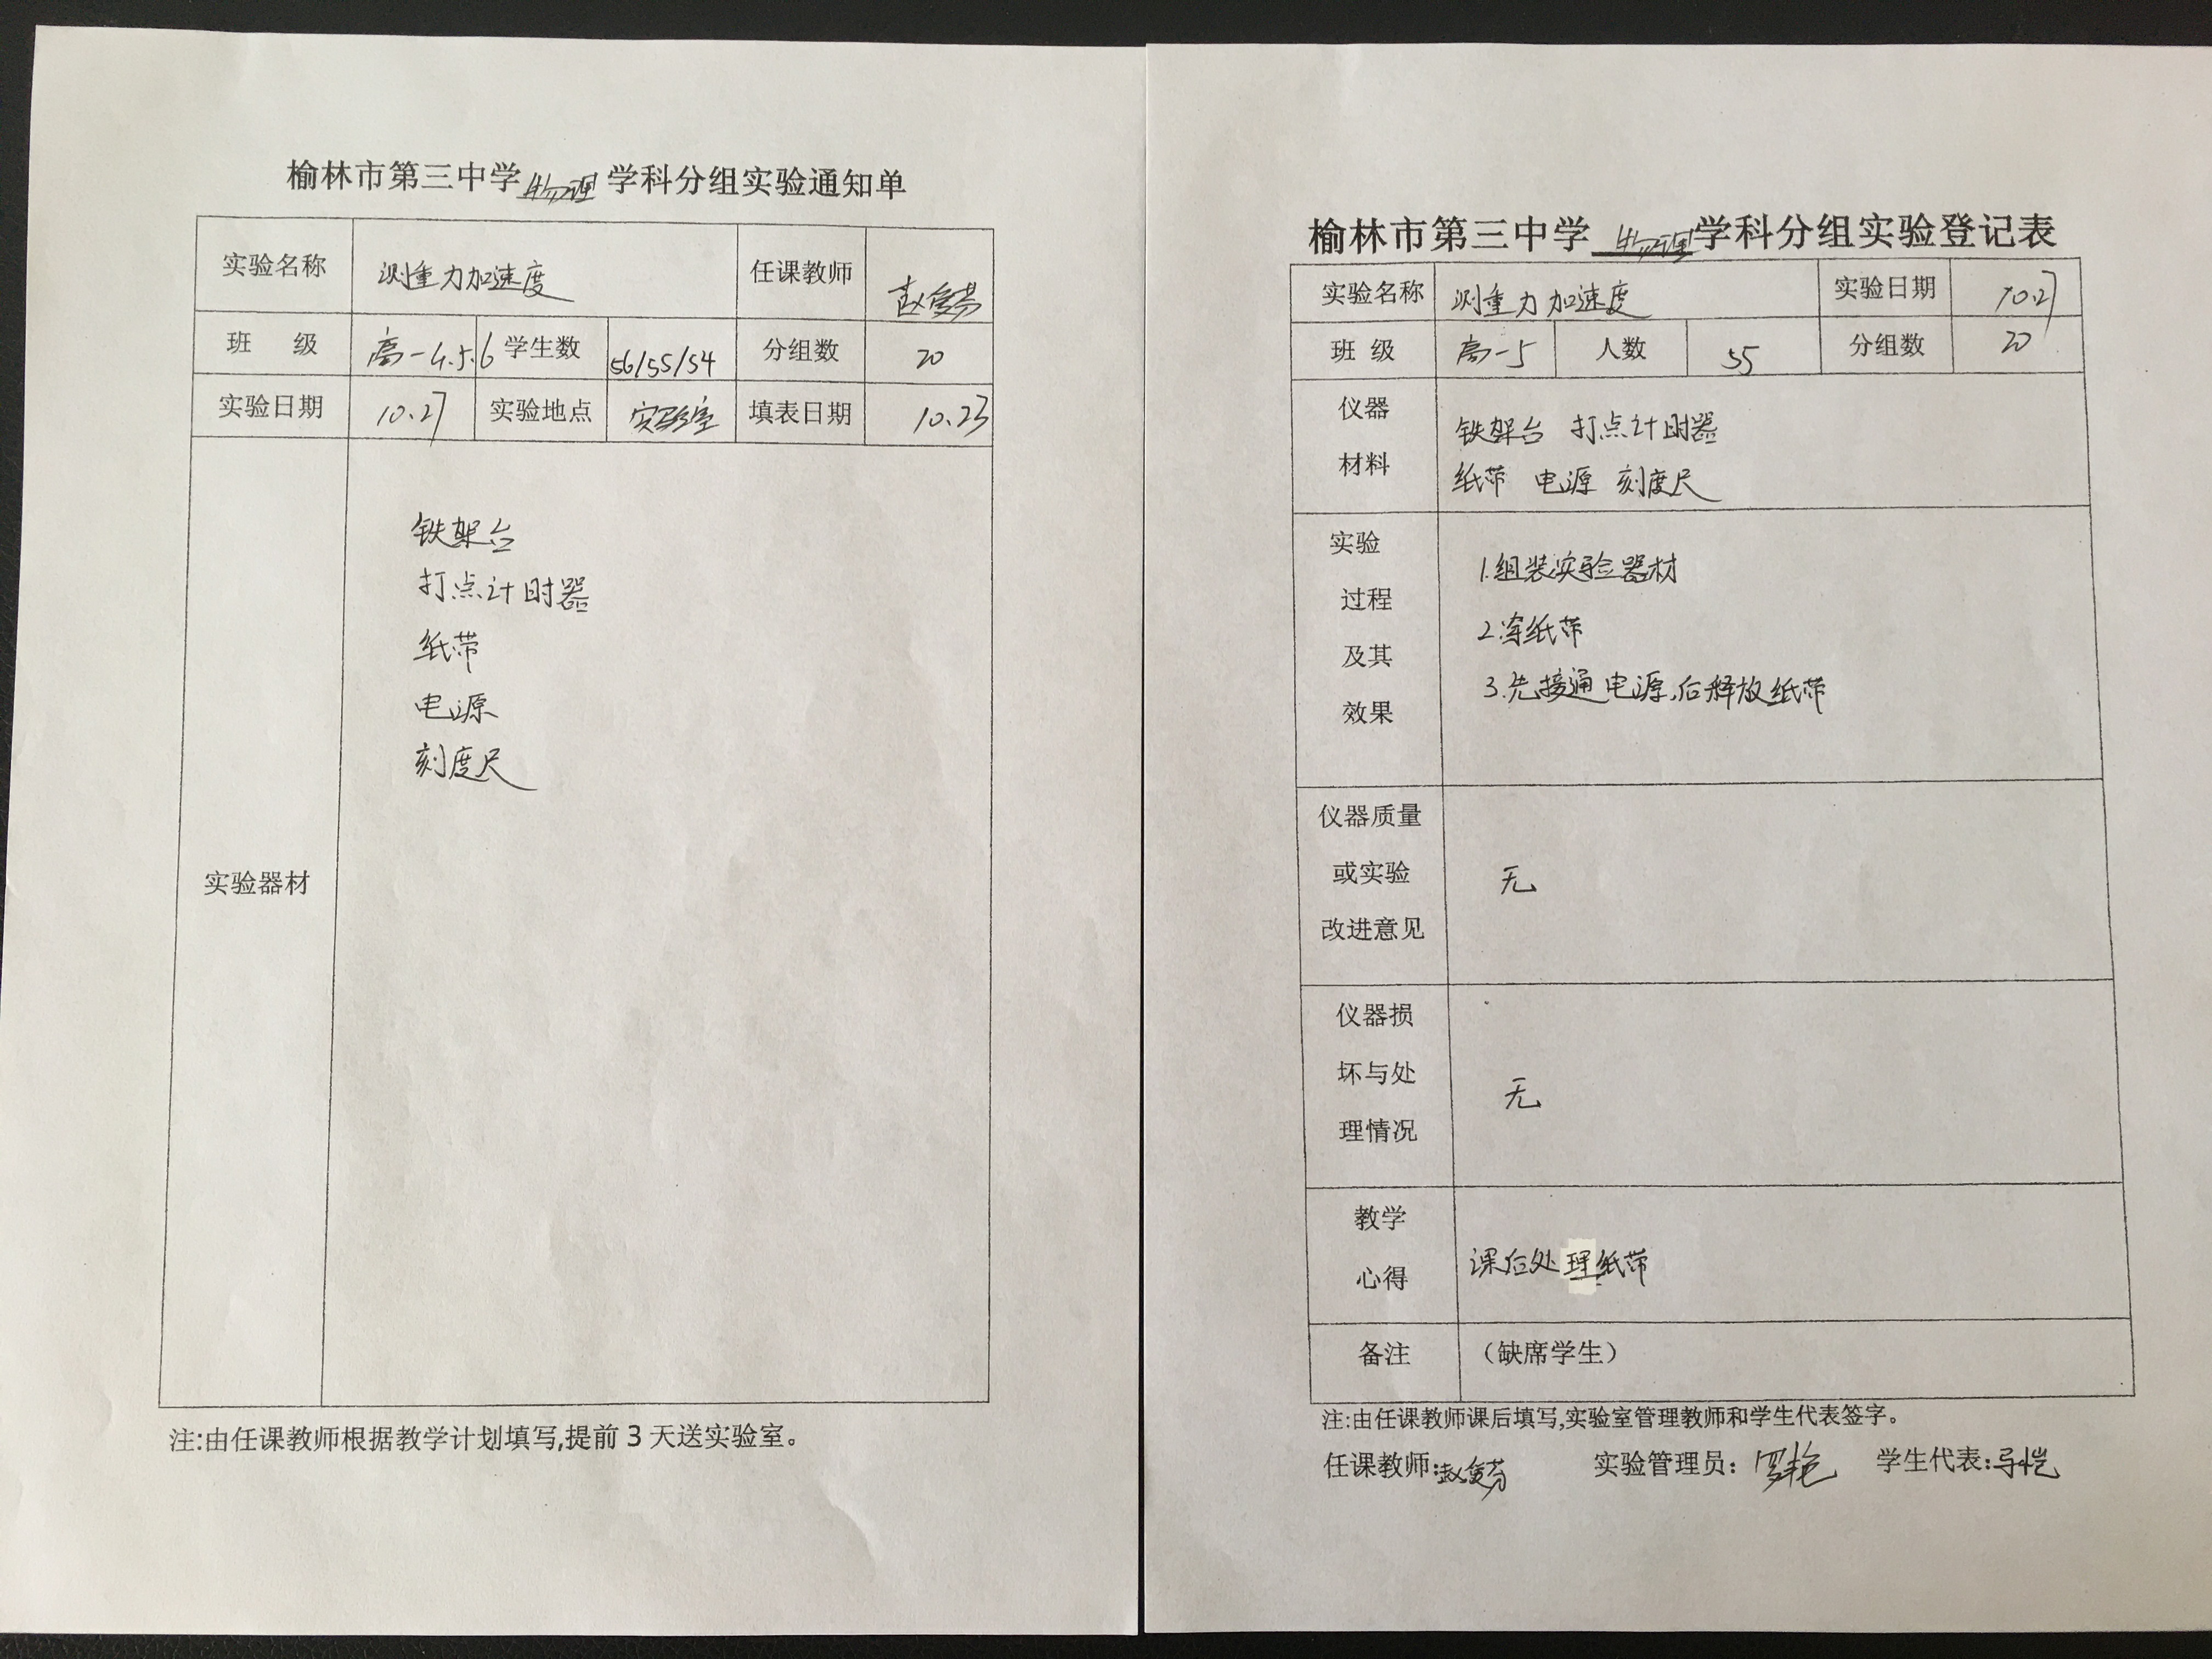 榆林市第三中学物理学科分组实验通知单
实验名称 测重力加速度 任课教师
班 级 高一4.5.6 学生数 56/55/54 分组数 20
实验日期 10.27 实验地点 实验室 填表日期 10.23
实验器材
铁架台
打点计时器
纸带
电源
刻度尺
注:由任课教师根据教学计划填写,提前3天送实验室。
榆林市第三中学物理学科分组实验登记表
实验名称 测重力加速度 实验日期 10.27
班 级 高一5 人数 55 分组数 20
仪器
材料
铁架台 打点计时器
纸带 电源 刻度尺
实验
过程
及其
效果
1.组装实验器材
2.穿纸带
3.先接通电源,后释放纸带
仪器质量
或实验
改进意见
无
仪器损
坏与处
理情况
无
教学
心得
课后处理纸带
备注 （缺席学生）
注:由任课教师课后填写,实验室管理教师和学生代表签字。
任课教师: 实验管理员：罗艳 学生代表: